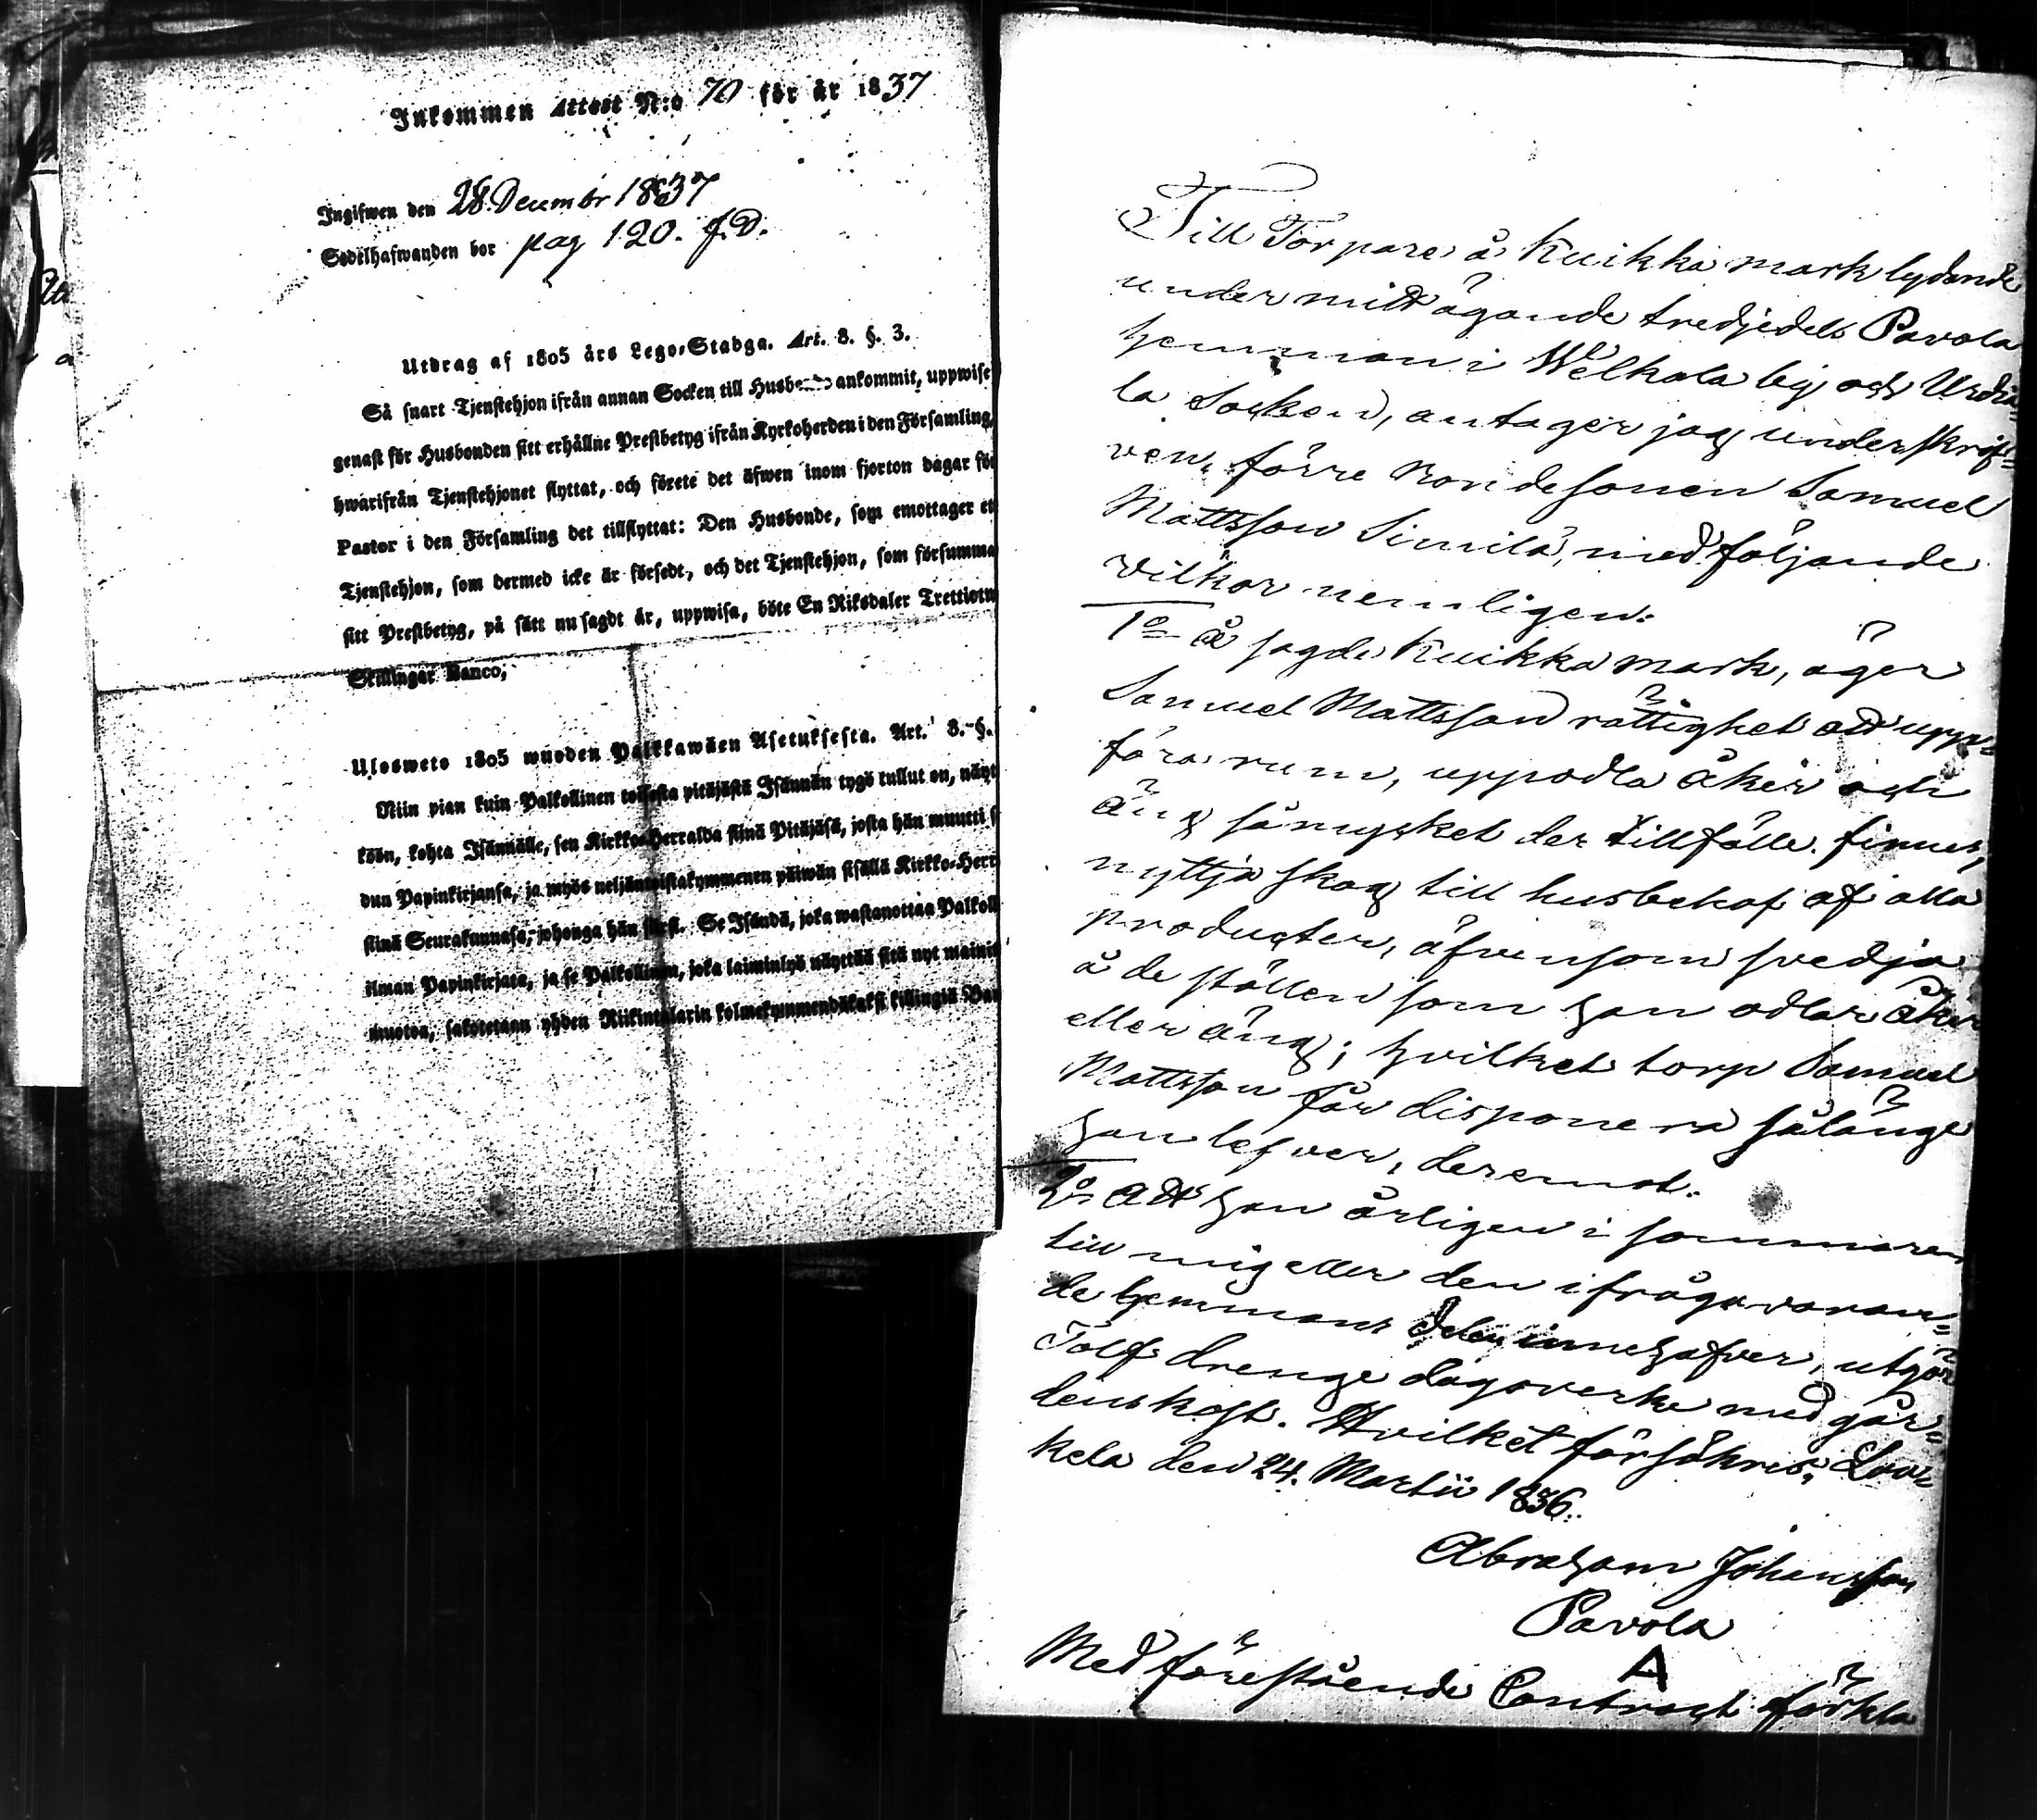 Inkommen Attest N:o 70 för år 1837
Ingifwen den 28. December 1837
Sedelhafwanden bor pag 120. f.D.
Utdrag af 1805 års Lego-Stadga. Art. 8. §. 3.
Så snart Tjenstehjon ifrån annan Socken till Husbonde ankommit, uppwise
genast för Husbonden sitt erhållne Prestbetyg ifrån Kyrkoherden i den Församling,
hwarifrån Tjenstehjonet flyttat, och förete det äfwen inom fjorton dagar för
Pastor i den Församling det tillflyttat: Den Husbonde, som emottager ett
Tjenstehjon, som dermed icke är försedt, och det Tjenstehjon, som försumma
sitt Prestbetyg, på sätt nu sagdt är, uppwisa, böte En Riksdaler Trettiotw
Skillingar Banco;
Ulosweto 1805 wuoden Palkkawäen Asetuksesta. Art. 8. §.
Niin pian kuin Palkollinen toisesta pitäjästä Isännän tygö tullut on, näyt
köön, kohta Isännälle, sen Kirkko-Herralda siinä Pitäjäsä, josta hän muutti s
dun Papinkirjansa, ja myös neljäntoistakymmenen päiwän sisällä Kirkko-Herr
siinä Seurakunnasa, johonga hän siirsi. Se Isändä, joka wastanottaa Palkoll
ilman Papinkirjata, ja se Palkollinen, joka laiminlyö näyttää sitä nyt mainit
muotoa, sakotetaan yhden Riikintalarin kolmekymmendäkaksi killingiä Ban
Till Torpare å Kuikka mark lydande
under mitt ägande tredjedels Pavola
hemman i Welkala by och Urdia=
la Socken, antager jag underskrif=
ven, förre Bondesonen Samuel
Mattsson Simila, med följande
vilkor nemligen:
1o å sagde Kuikka mark, äger
Samuel Mattsson rättighet att upp=
föra rum, uppodla åker och
äng så mycket der tillfälle finnes,
nyttja skog till husbehof af alla
producter, äfvensom svedja
å de ställen som han odlar åker
eller äng; hvilket torp Samuel
Mattsson får disponera så länge
han lefver, deremot.
2o Att han årligen i sommaren
till mig eller den ifrågavaran=
de hemmans delen innehafver, utgör
Tolf drenge dagsverke med går=
dens kost. Hvilket försäkras,
kela den 24. Martii 1836.
Abraham Johansson
Pavola
A
Med förestående Contract förkla